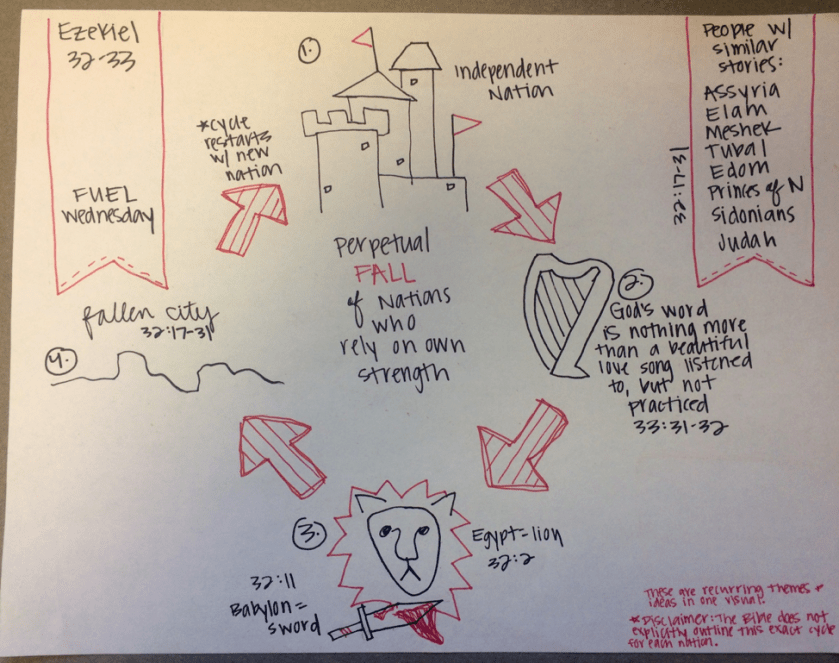 Ezekiel
32-33
FUEL
Wednesday
1.
Independent
Nation
People w/
similar
stories:
Assyria
Elam
Meshek
Tubal
Edom
Princes of N
Sidonians
Judah
32:17-31
*cycle
restarts
w/ new
nation
perpetual
FALL
of Nations
who
rely on own
strength
2.
God's word
is nothing more
than a beautiful
love song listened
to, but not
practiced
33:31-32
3.
Egypt=lion
32:2
32:11
Babylon=
sword
4.
fallen city
32:17-31
These are recurring themes +
ideas in one visual.
*Disclaimer: The Bible does not
explicitly outline this exact cycle
for each nation.